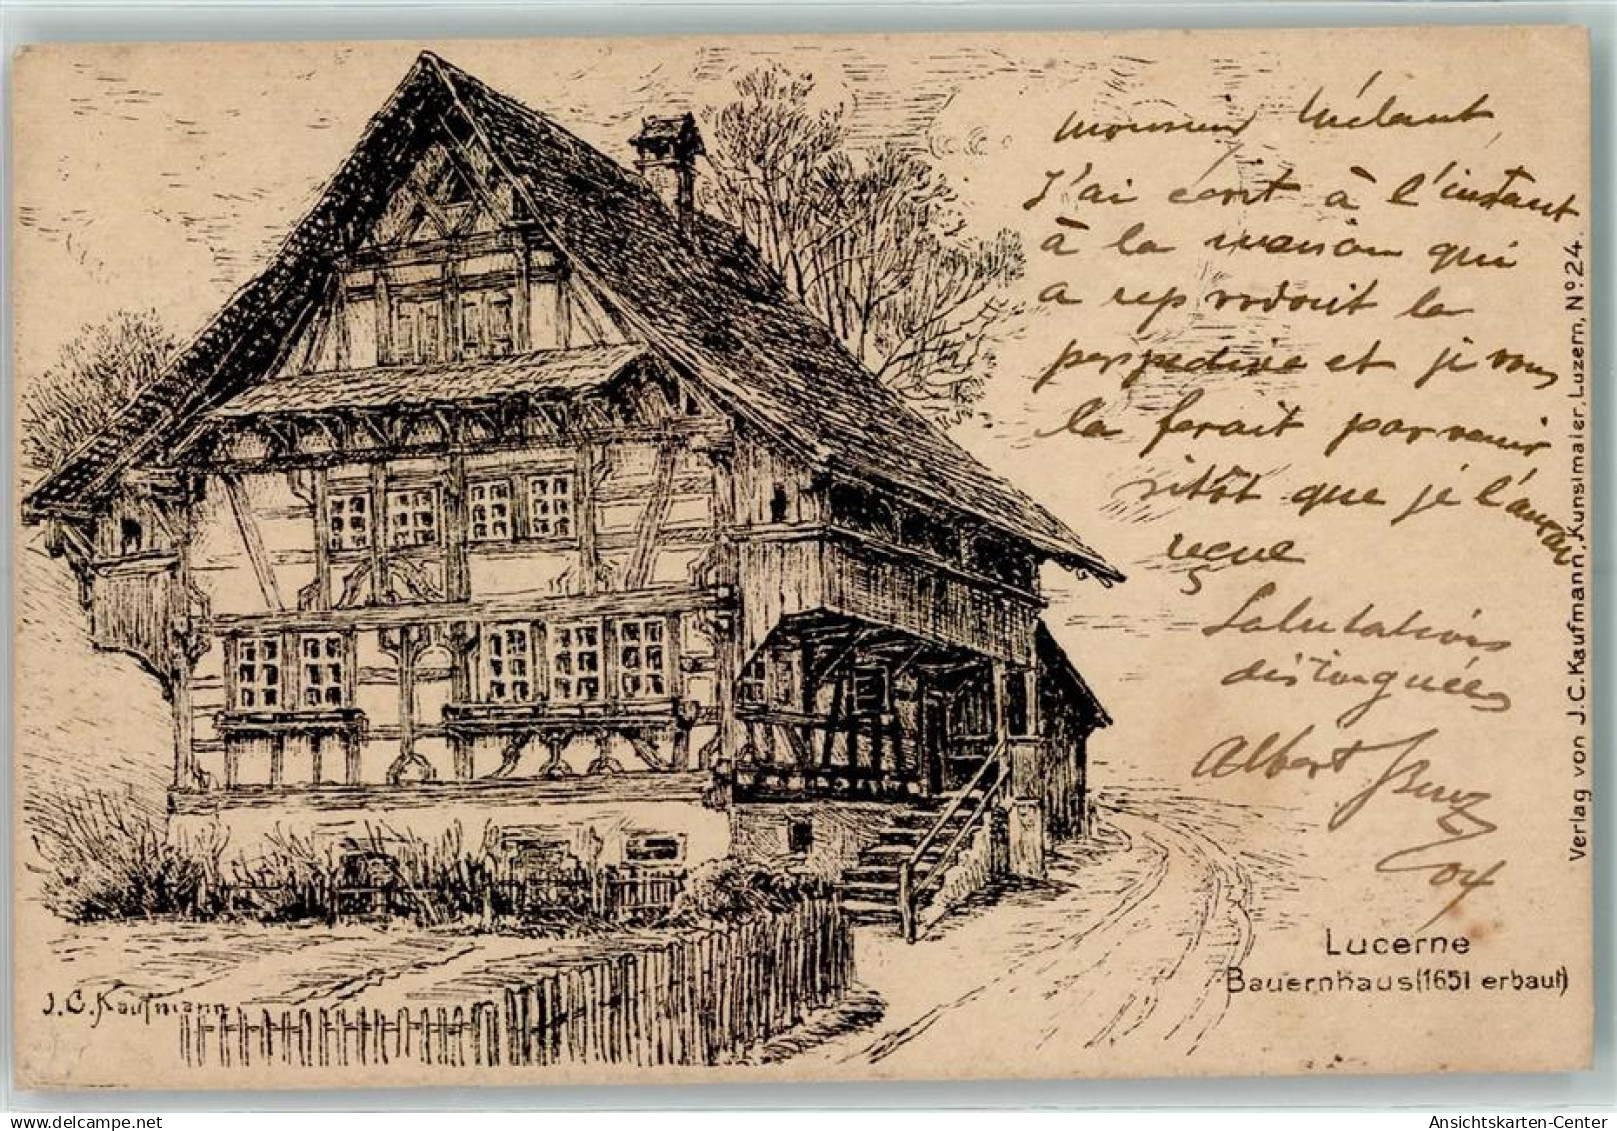 Monsieur Mélant,
J'ai écrit à l'instant
à la maison qui
a reproduit la
perspective et je vous
la ferait parvenir
sitôt que je l'aurai
reçue
Salutations
distinguées
Albert
Lucerne
Bauernhaus (1651 erbaut)
Verlag von J.C.Kaufmann, Kunstmaler, Luzern, No. 24.
J.C.Kaufmann
oldthing.com
Ansichtskarten-Center